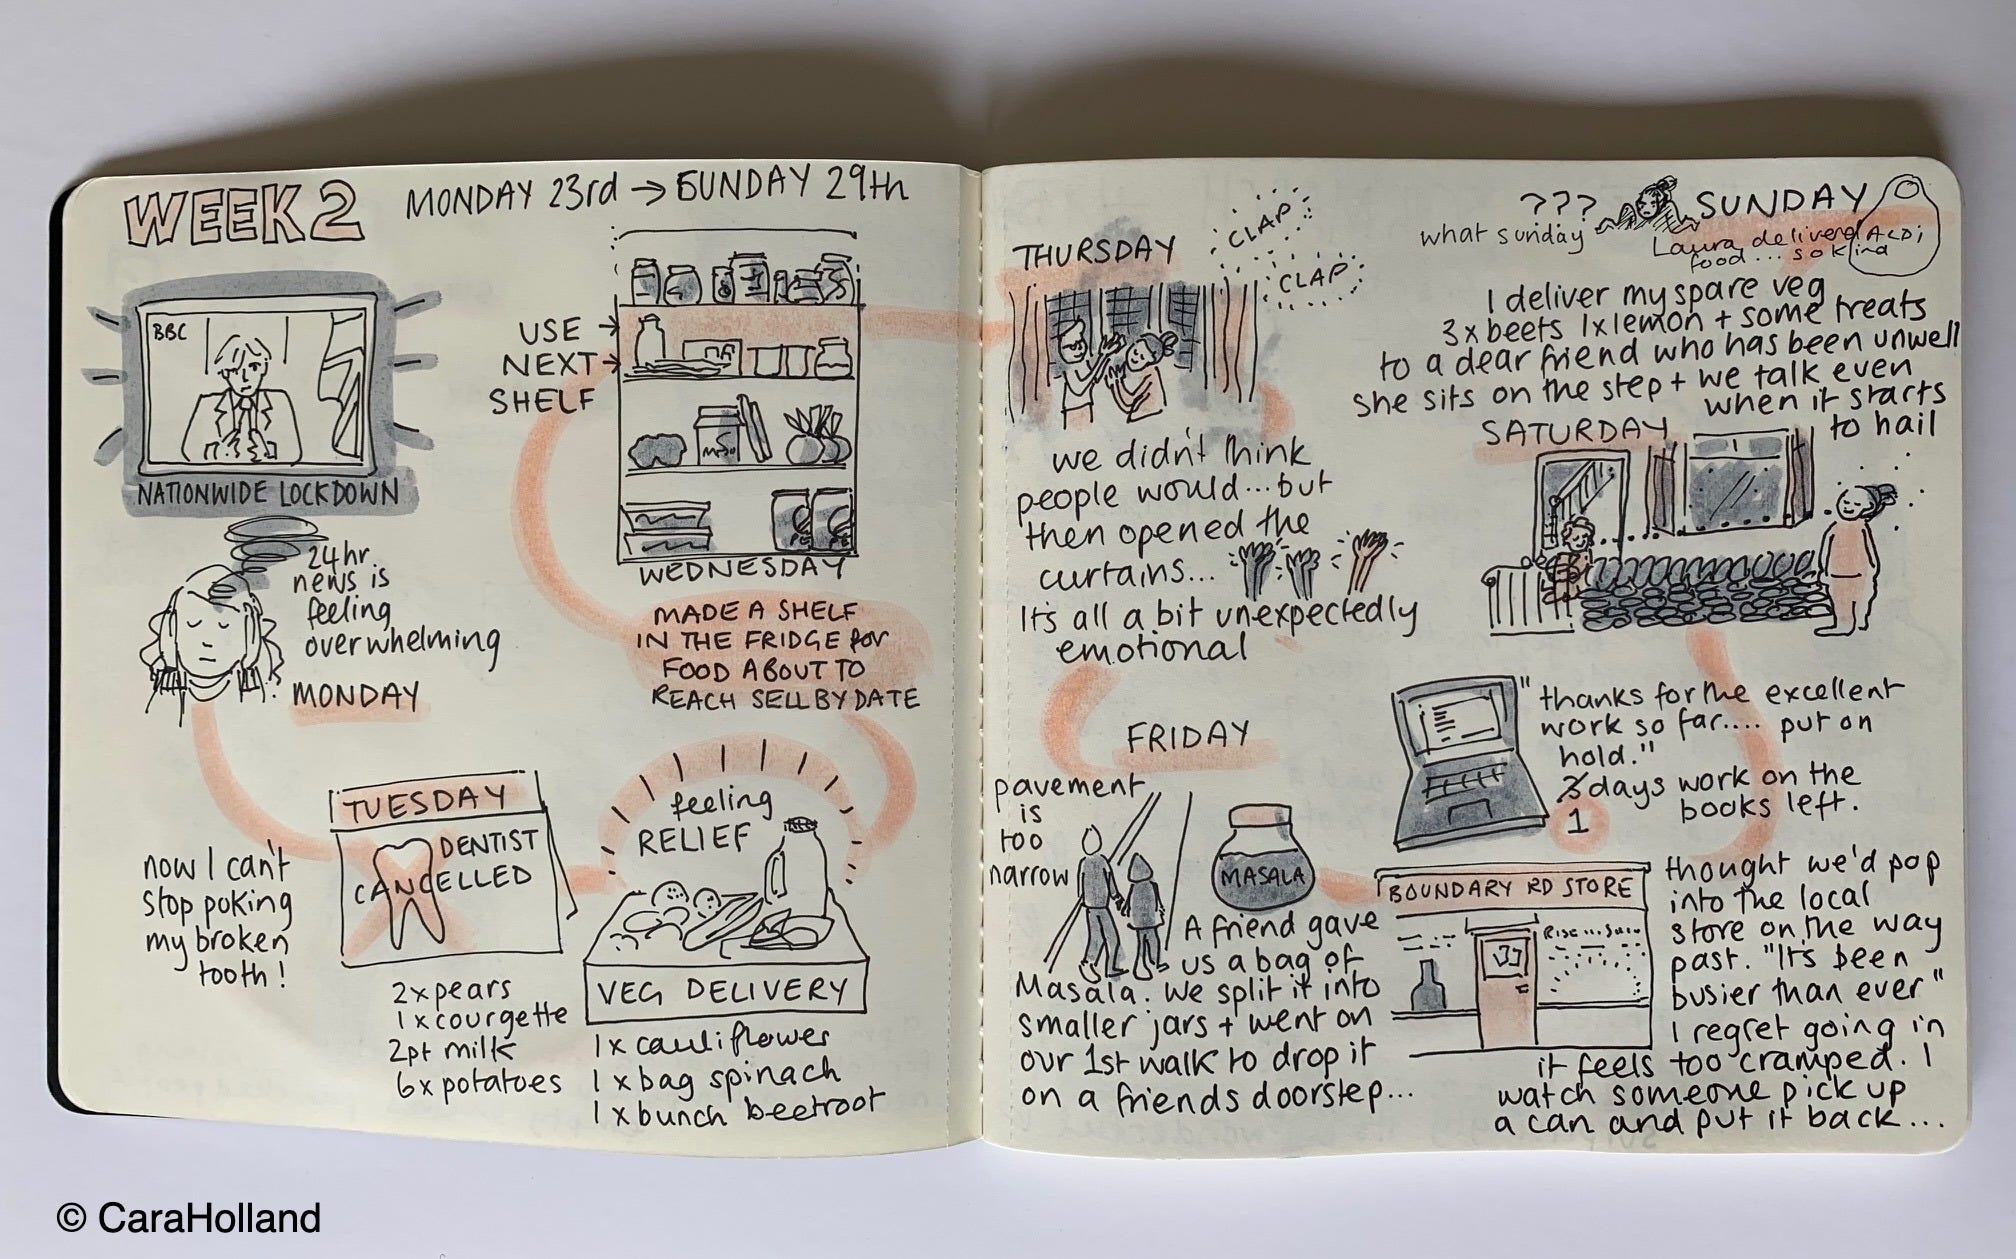 WEEK 2
MONDAY 23rd → SUNDAY 29th
BBC
NATIONWIDE LOCKDOWN
24hr
news is
feeling
overwhelming
MONDAY
TUESDAY
DENTIST
CANCELLED
now I can't
stop poking
my broken
tooth!
feeling
RELIEF
VEG DELIVERY
2x pears
1x courgette
2pt milk
6x potatoes
1x cauliflower
1x bag spinach
1x bunch beetroot
USE →
NEXT →
SHELF
WEDNESDAY
MADE A SHELF
IN THE FRIDGE for
FOOD ABOUT TO
REACH SELL BY DATE
THURSDAY
CLAP
CLAP
we didn't think
people would...but
then opened the
curtains...
It's all a bit unexpectedly
emotional
FRIDAY
pavement
is
too
narrow
MASALA
A friend gave
us a bag of
Masala. We split it into
smaller jars + went on
our 1st walk to drop it
on a friends doorstep...
BOUNDARY RD STORE
thought we'd pop
into the local
store on the way
past. "It's been
busier than ever"
I regret going in
it feels too cramped. I
watch someone pick up
a can and put it back...
"thanks for the excellent
work so far.... put on
hold."
3 days work on the
books left.
1
SATURDAY
I deliver my spare veg
3x beets 1x lemon + some treats
to a dear friend who has been unwell
she sits on the step + we talk even
when it starts
to hail
SUNDAY
???
what sunday
Laura delivered ALDI
food... so kind
© CaraHolland